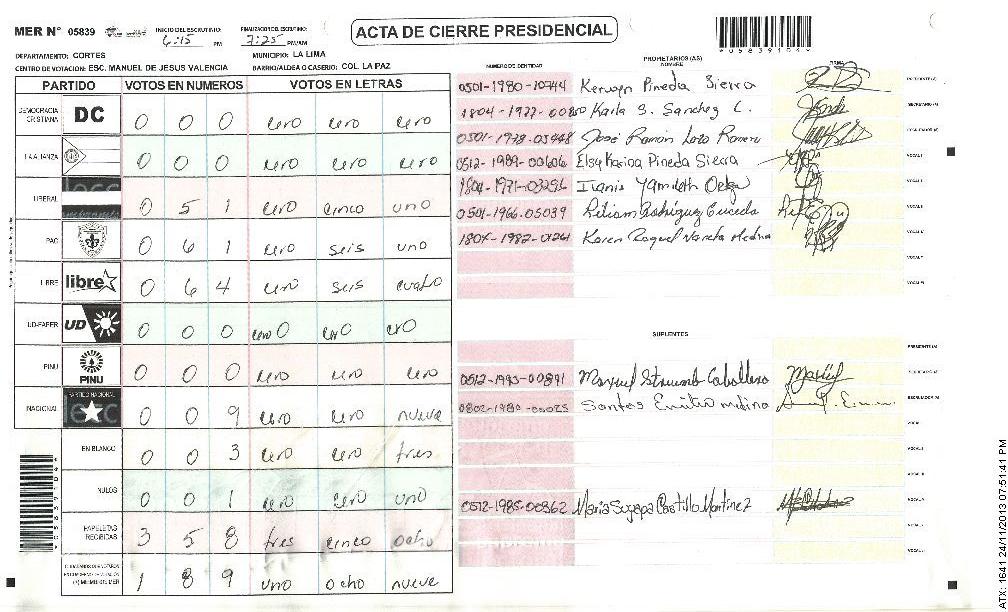 MER N° 05839 INICIO DEL ESCRUTINIO: 6:15 PM FINALIZACION DEL ESCRUTINIO: 7:25 PM/AM
ACTA DE CIERRE PRESIDENCIAL
DEPARTAMENTO: CORTES MUNICIPIO: LA LIMA
CENTRO DE VOTACION: ESC. MANUEL DE JESUS VALENCIA BARRIO/ALDEA O CASERIO: COL. LA PAZ
PARTIDO VOTOS EN NUMEROS VOTOS EN LETRAS
DEMOCRACIA CRISTIANA DC 0 0 0 cero cero cero
LA ALIANZA 0 0 0 cero cero cero
LIBERAL 0 5 1 cero cinco uno
PAC 0 6 1 cero seis uno
LIBRE libre 0 6 4 cero seis cuatro
UD-FAPER UD 0 0 0 cero cero cero
PINU PINU 0 0 0 cero cero cero
NACIONAL PARTIDO NACIONAL 0 0 9 cero cero nueve
EN BLANCO 0 0 3 cero cero tres
NULOS 0 0 1 cero cero uno
PAPELETAS RECIBIDAS 3 5 8 tres cinco ocho
1 8 9 uno ocho nueve
NUMERO DE IDENTIDAD PROPIETARIOS (AS) NOMBRE FIRMA
0501-1980-10744 Kerwyn Pineda Sierra PRESIDENTE (A)
1804-1977-00850 Karla S. Sanchez L. SECRETARIO (A)
0501-1978-05448 José Ramon Lozo Romero ESCRUTADOR (A)
0512-1989-00606 Elsy Karina Pineda Sierra VOCAL I
1804-1971-03296 Iranis Yamileth
0501-1966-05039 Ritiam Rodriguez Euceda
1807-1982-01261 Karen Raquel Varela Medina
SUPLENTES
PRESIDENTE (A)
0512-1993-00891 Caballero SECRETARIO (A)
0802-1980-00025 Santos Emilio medina ESCRUTADOR (A)
0512-1985-00362 Maria Suyapa Castillo Martinez
05839104
ATX: 1641 24/11/2013 07:51:41 PM